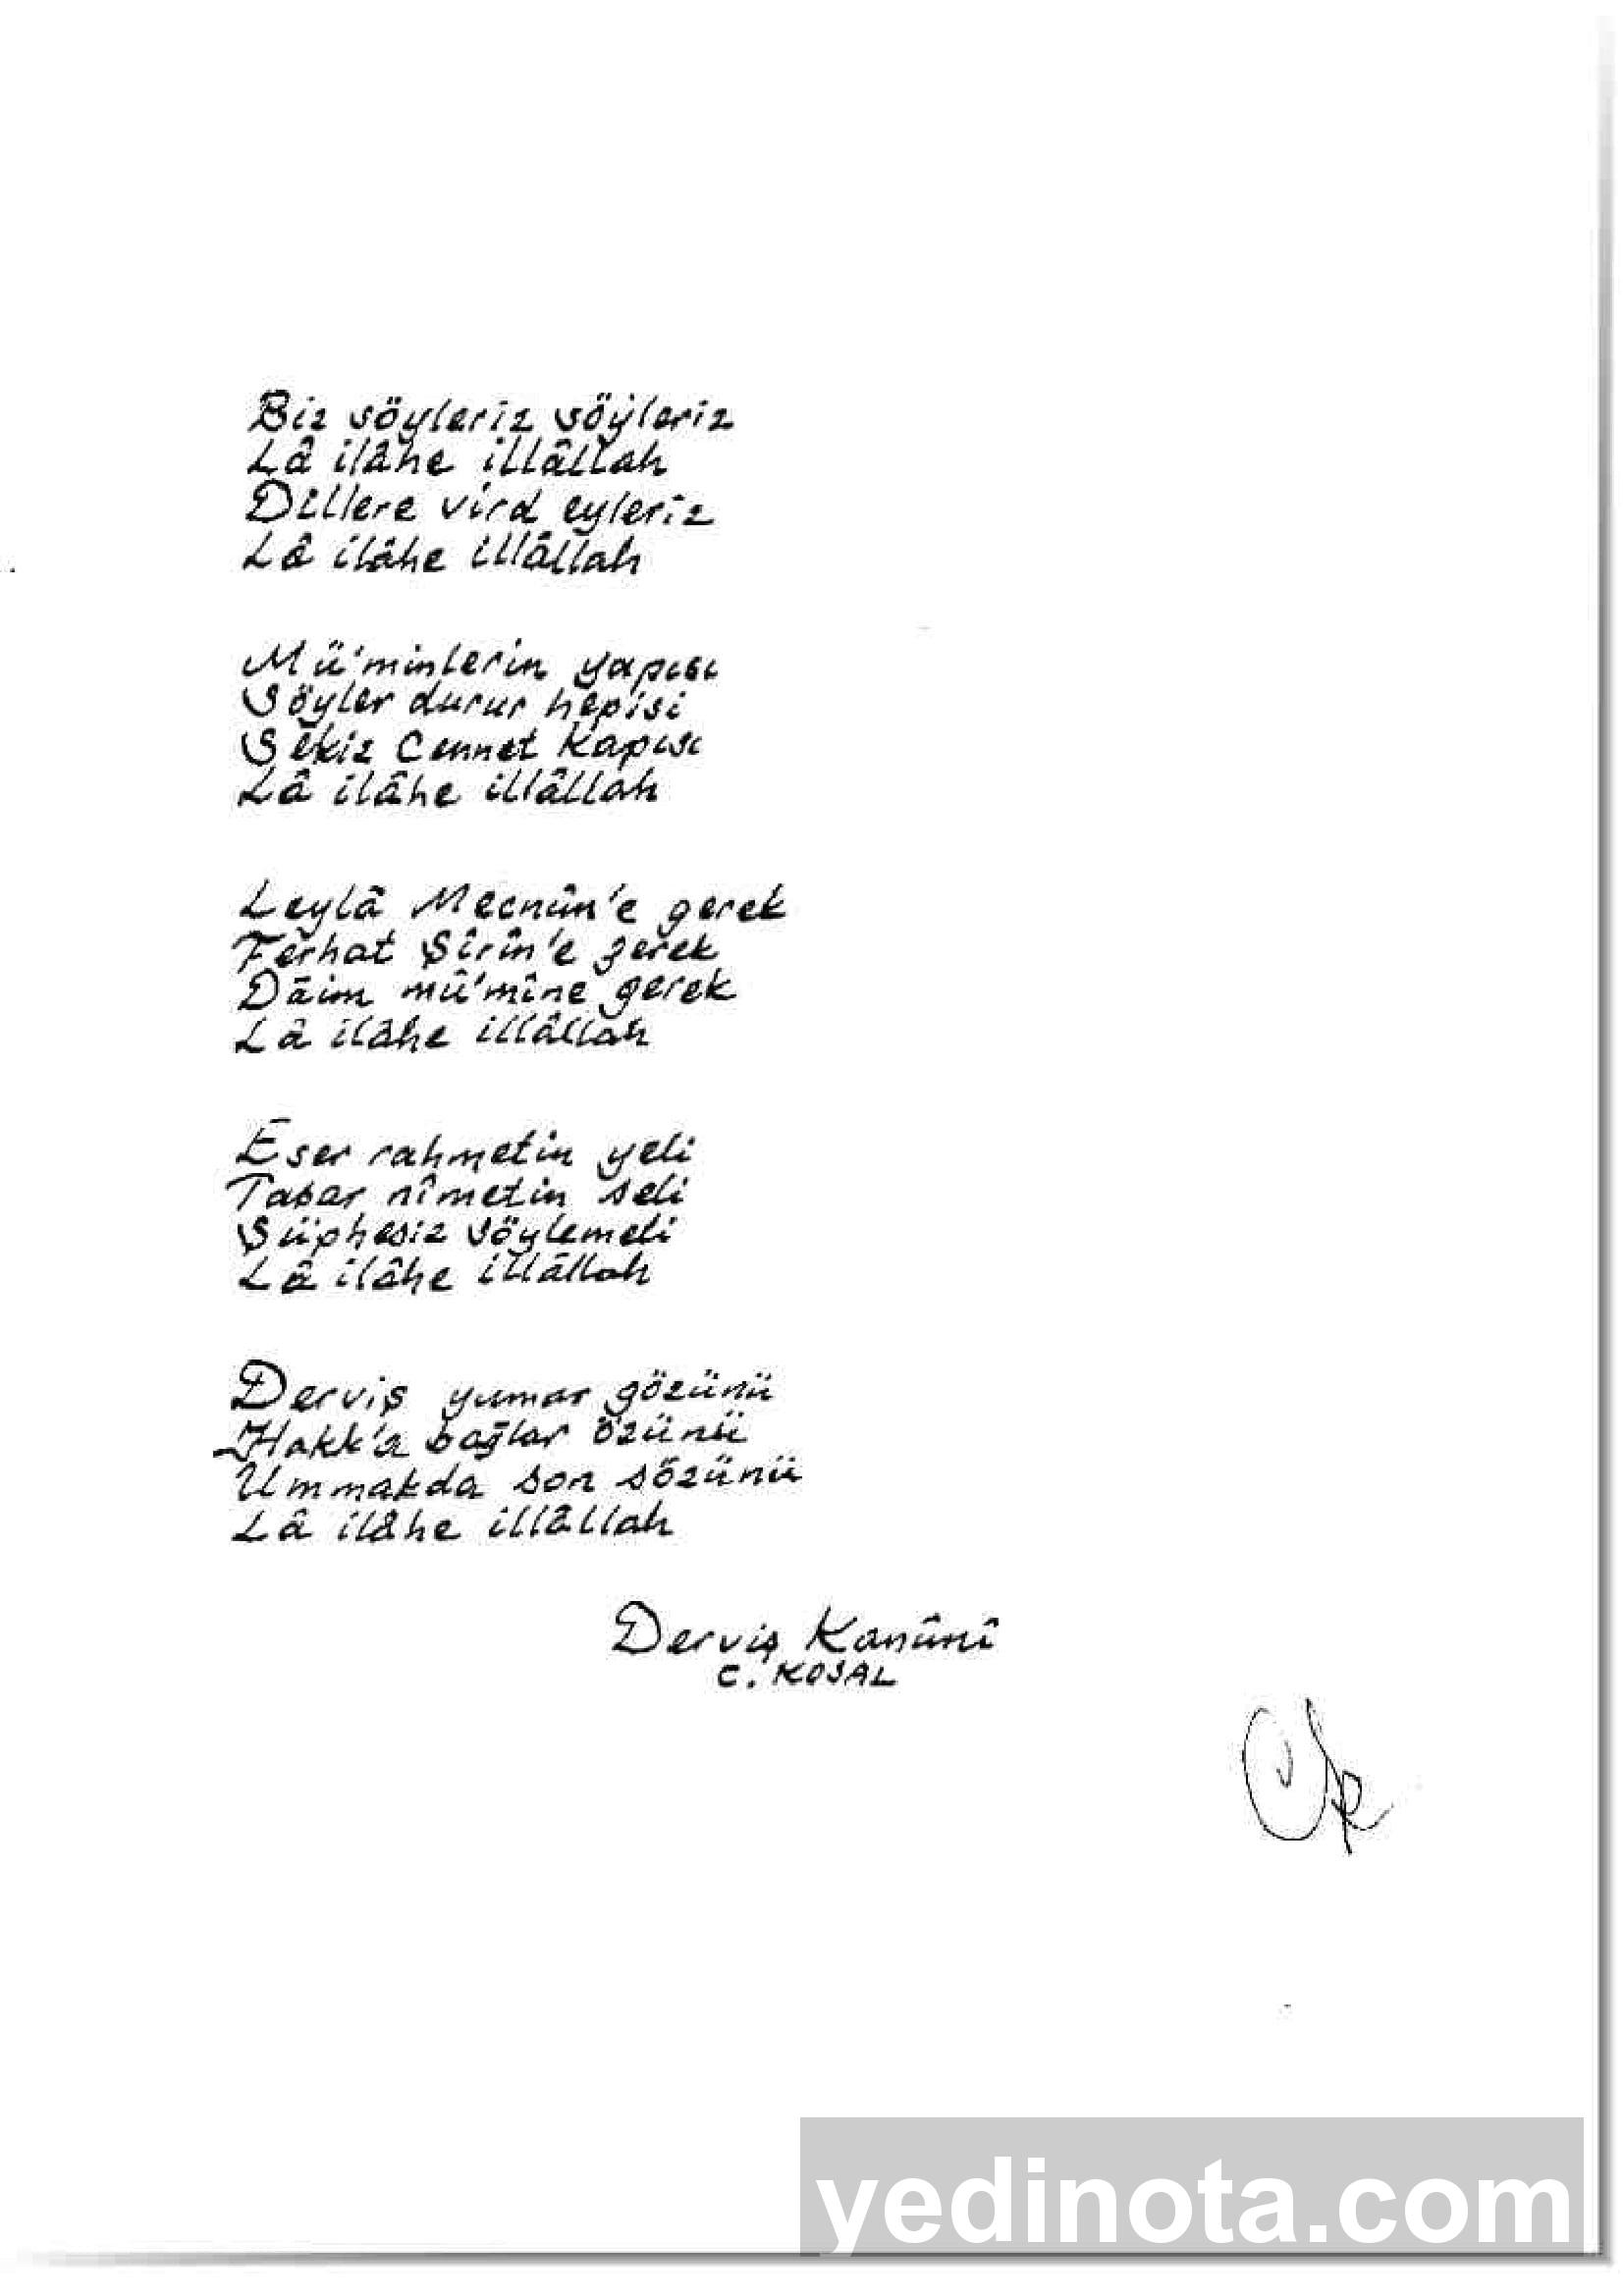 Biz söyleriz söyleriz
Lâ ilâhe illâllah
Dillere vird eyleriz
Lâ ilâhe illâllah
Mü'minlerin yapısı
Söyler durur hepisi
Sekiz Cennet Kapısı
Lâ ilâhe illâllah
Leylâ Mecnûn'e gerek
Ferhat Şîrîn'e gerek
Dâim mü'mîne gerek
Lâ ilâhe illâllah
Eser rahmetin yeli
Taşar nîmetin seli
Şüphesiz söylemeli
Lâ ilâhe illâllah
Derviş yumar gözünü
Hakk'a bağlar özünü
Ummakda son sözünü
Lâ ilâhe illâllah
Derviş Kanûnî
C. KOSAL
yedinota.com